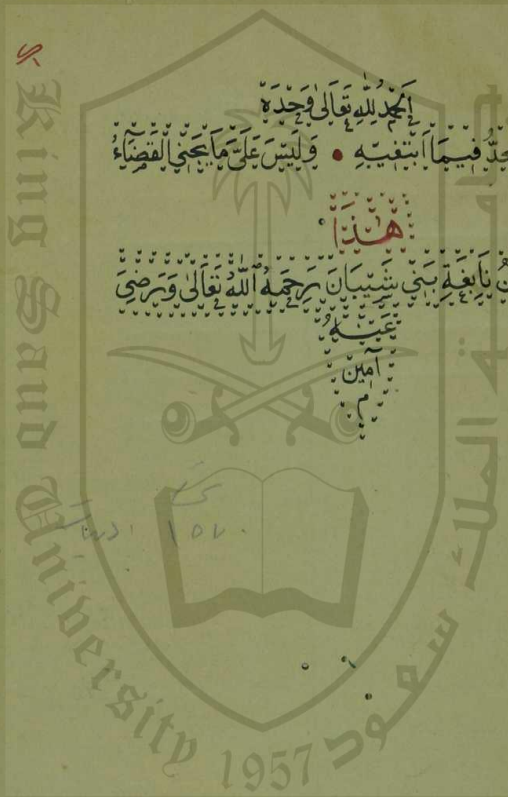 الحمد لله تعالى وحده
فيما ابتغيه • وليس علي ما يجني القضاء
هذا
نابغة بني شيبان رحمه الله تعالى ورضي
عنه
آمين
م
١٥٧٠
King Saud University 1957
جامعة الملك سعود